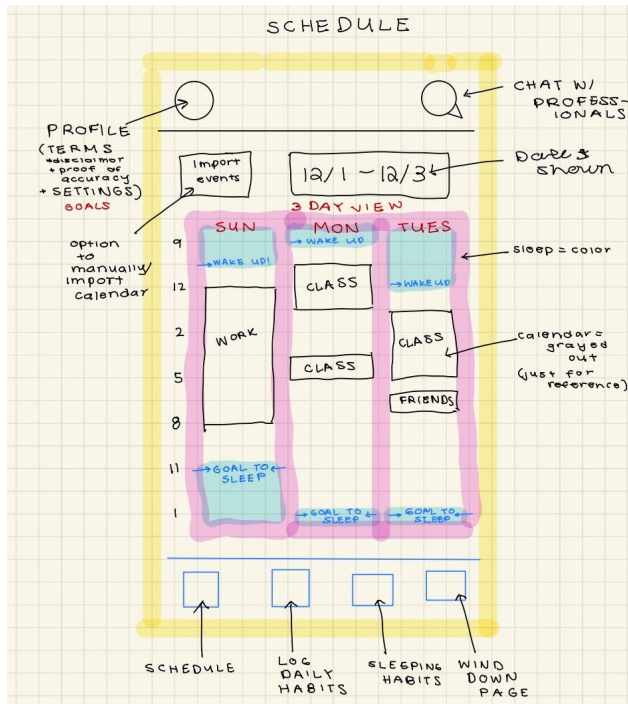 SCHEDULE
CHAT W/
PROFESS-
IONALS
PROFILE
(TERMS
+disclaimor
+ proof of
accuracy
+ SETTINGS)
GOALS
Import
events
12/1 - 12/3
Dates
shown
3 DAY VIEW
SUN
MON
TUES
option
to
manually/
import
calendar
9
12
2
5
8
11
1
WAKE UP!
WORK
GOAL TO
SLEEP
WAKE UP
CLASS
CLASS
GOAL TO
SLEEP
WAKE UP
CLASS
FRIENDS
GOAL TO
SLEEP
sleep = color
calendar =
grayed
out
(just for
reference)
SCHEDULE
LOG
DAILY
HABITS
SLEEPING
HABITS
WIND
DOWN
PAGE